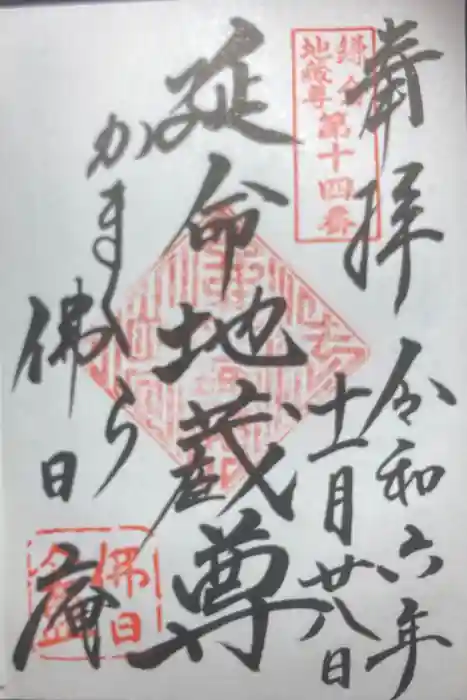 奉拝
令和六年
十一月廿八日
鎌倉
地蔵尊第十四番
延命地蔵尊
かまくら
佛日庵
佛日